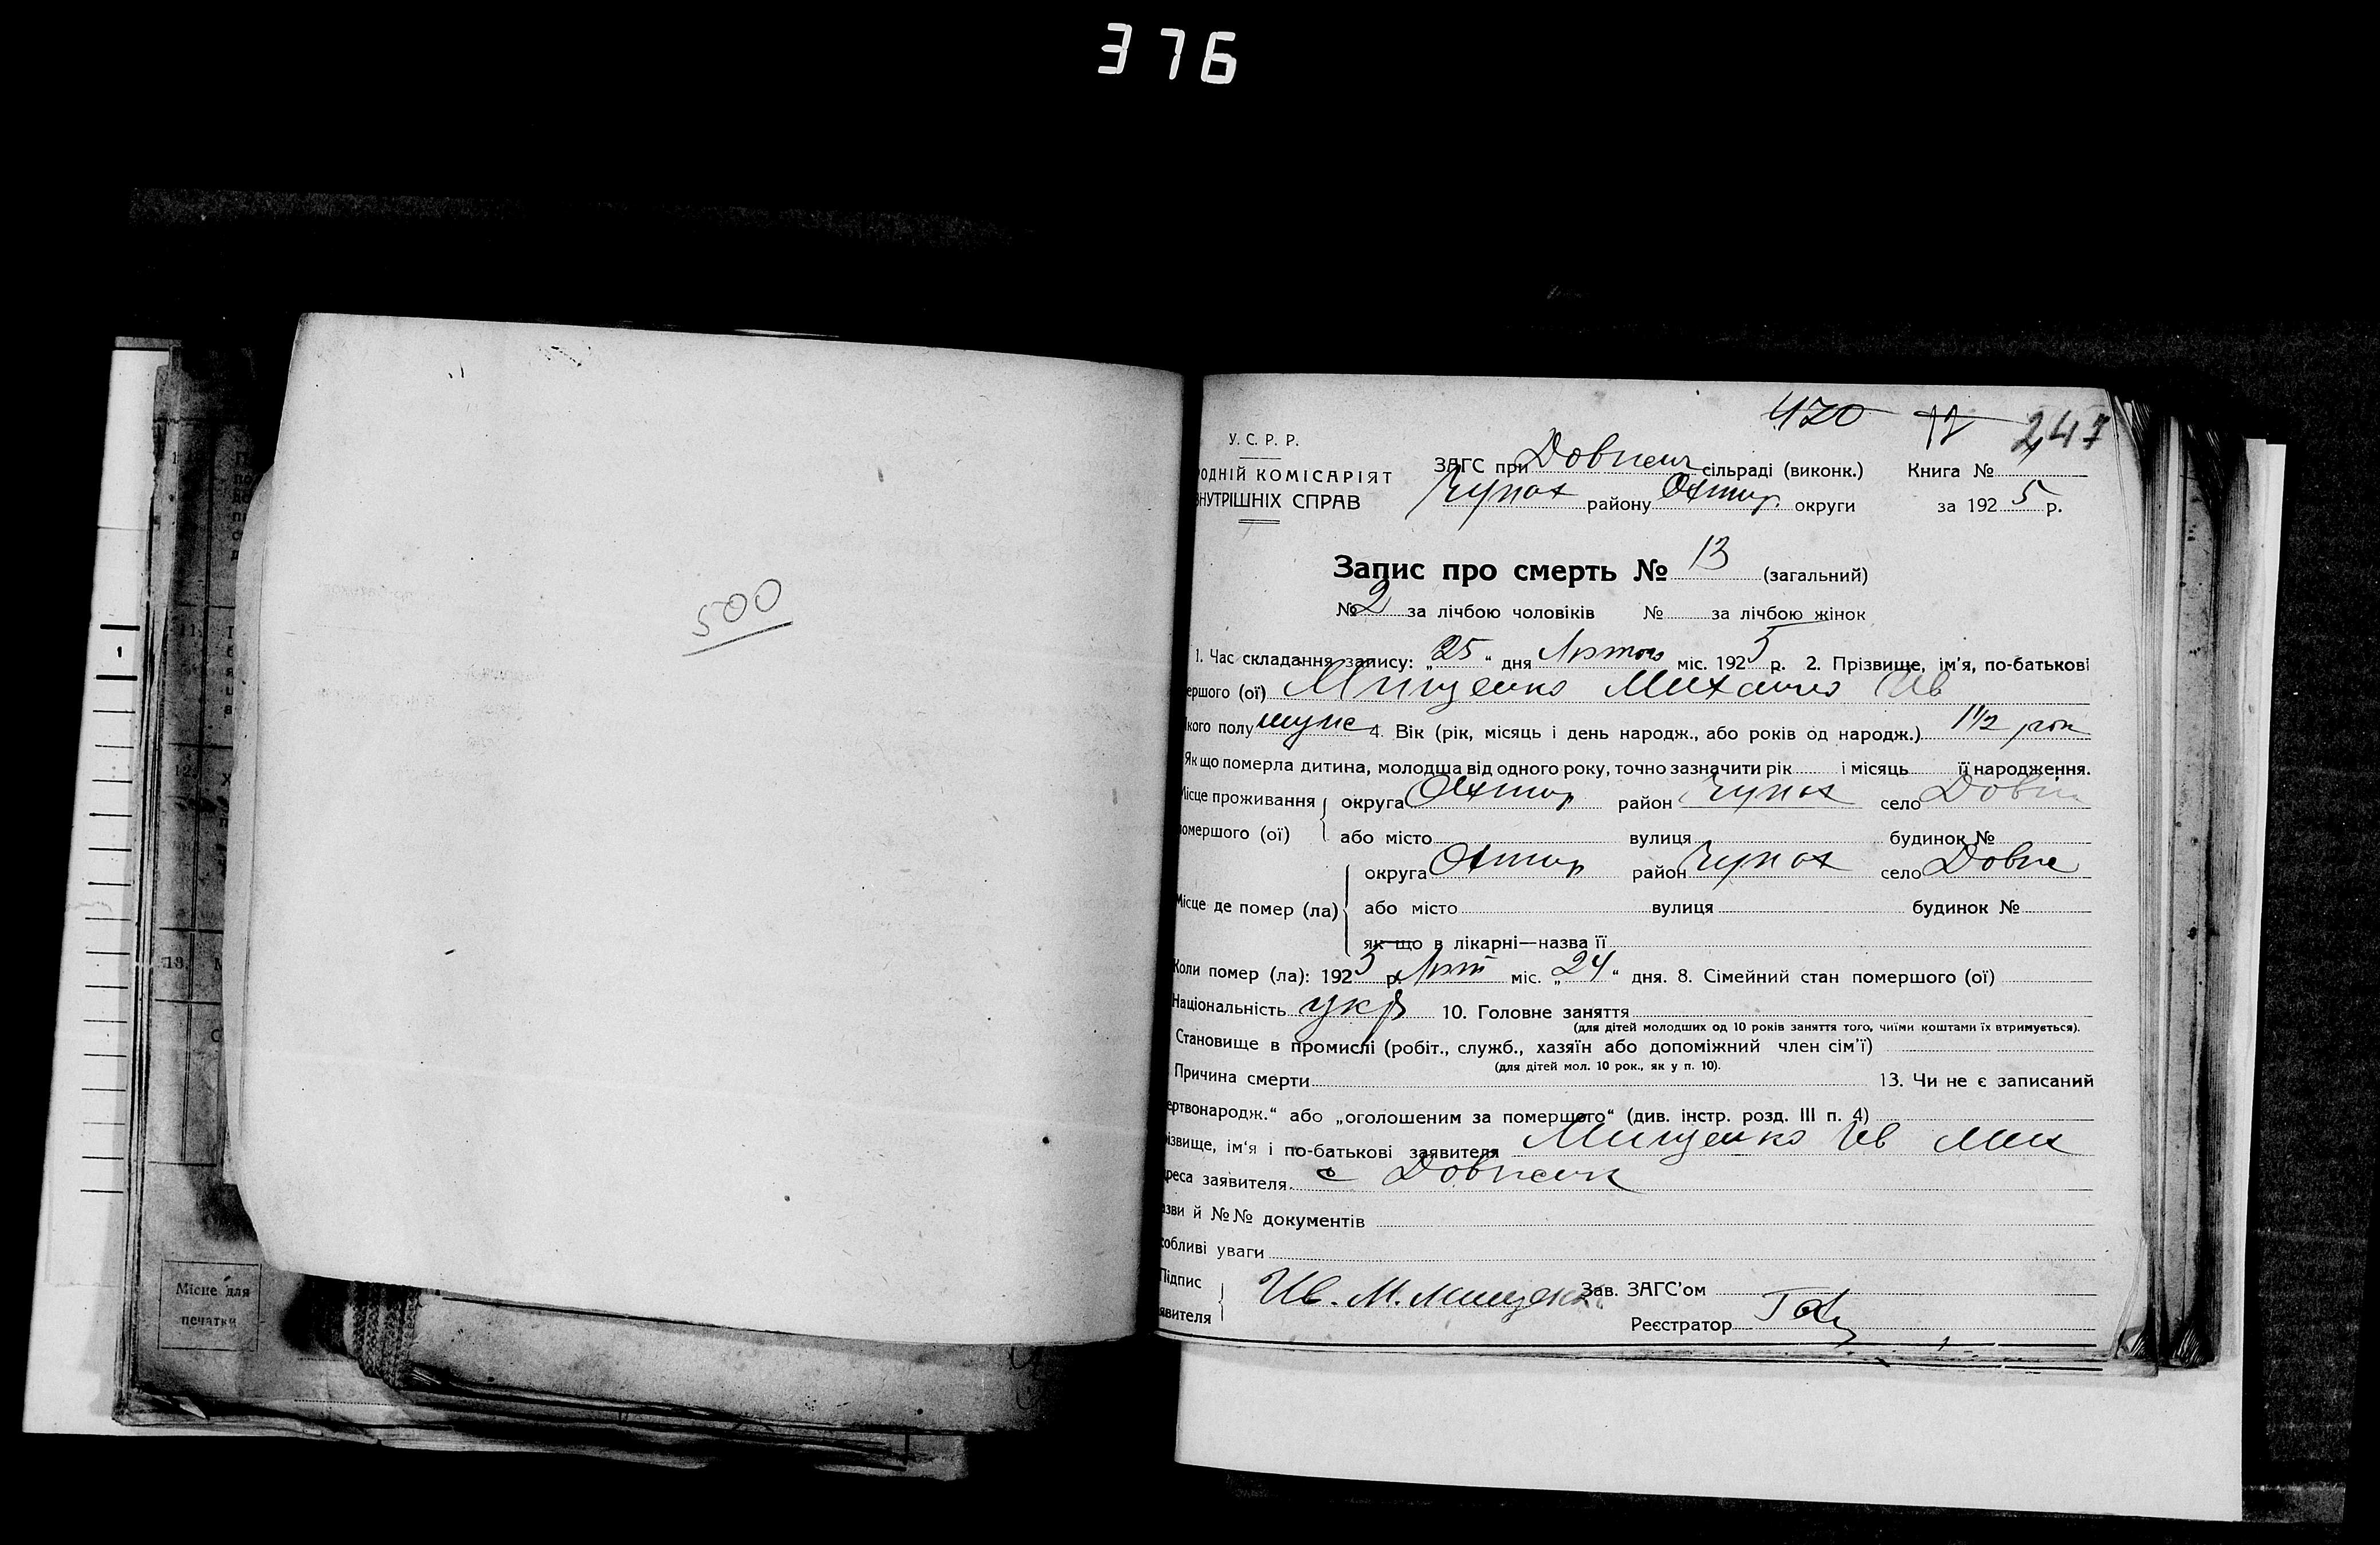 376
500
1
13.
Місце для
печатки
420 12 247
У. С. Р. Р.
ОДНІЙ КОМІСАРІЯТ ЗАГС при Довжен сільраді (виконк.) Книга №
НУТРІШНІХ СПРАВ Чупах району Охтир. округи за 1925 р.
Запис про смерть № 13 (загальний)
№ 2 за лічбою чоловіків № за лічбою жінок
1. Час складання запису: „25“ дня Лютого міс. 1925 р. 2. Прізвище, ім'я, по-батькові
ершого (ої) Мищенко Михаил Ив
кого полу муже 4. Вік (рік, місяць і день народж., або років од народж.) 1 1/2 рок
Як що померла дитина, молодша від одного року, точно зазначити рік і місяць її народження.
Місце проживання округа Охтир район Чупах село Довж
помершого (ої) або місто вулиця будинок №
округа Охтир район Чупах село Довже
Місце де помер (ла) або місто вулиця будинок №
як що в лікарні—назва її
Коли помер (ла): 1925 р. Лют міс. „24“ дня. 8. Сімейний стан помершого (ої)
Національність укр 10. Головне заняття
(для дітей молодших од 10 років заняття того, чиїми коштами їх втримується).
Становище в промислі (робіт., служб., хазяїн або допоміжний член сім'ї)
(для дітей мол. 10 рок., як у п. 10).
Причина смерти 13. Чи не є записаний
ертвонародж.“ або „оголошеним за померщого“ (див. інстр. розд. III п. 4)
ізвище, ім'я і по-батькові заявителя Мищенко Ив Мих
реса заявителя. с Довжек
зви й №№ документів
обливі уваги
Підпис Ив. М. Мищенко Зав. ЗАГС'ом
явителя Реєстратор